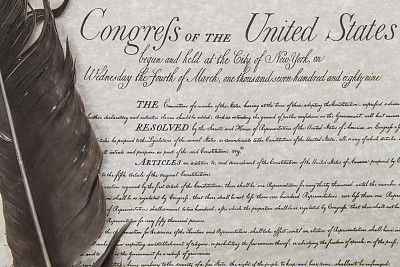 Congreſs OF THE United States
begun and held at the City of New York, on
Wednesday the Fourth of March, one thousand seven hundred and eighty nine
THE Conventions of a number of the States, having at the time of their adopting the Constitution, expressed a desire
further declaratory and restrictive clauses should be added: And as extending the ground of public confidence in the Government, will best ensure
RESOLVED by the Senate and House of Representatives of the United States of America, in Congress
to the Legislatures of the several States, as amendments to the Constitution of the United States, all, or any of which articles
to all intents and purposes, as part of the said Constitution; viz.
ARTICLES in addition to, and Amendment of the Constitution of the United States of America, proposed by
to the fifth Article of the original Constitution.
required by the first article of the Constitution, there shall be one Representative for every thirty thousand, until the number
shall be so regulated by Congress, that there shall be not less than one hundred Representatives, nor less than one
of Representatives shall amount to two hundred, after which the proportion shall be so regulated by Congress, that there shall not be
Representative for every fifty thousand persons.
for the services of the Senators and Representatives, shall take effect, until an election of Representatives shall have
respecting an establishment of religion, or prohibiting the free exercise thereof; or abridging the freedom of speech, or of the press;
the Government for a redress of grievances.
being necessary to the security of a free State, the right of the people to keep and bear Arms, shall not be infringed.